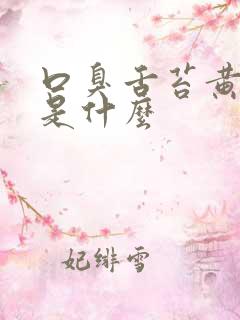 口臭舌苔黄
是什麼
妃绯雪